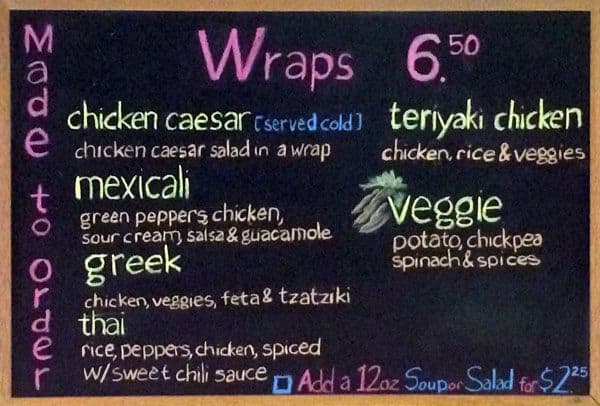 Made to order
Wraps 6.50
chicken caesar [served cold]
chicken caesar salad in a wrap
mexicali
green peppers, chicken,
sour cream, salsa & guacamole
greek
chicken, veggies, feta & tzatziki
thai
rice, peppers, chicken, spiced
w/sweet chili sauce
teriyaki chicken
chicken, rice & veggies
veggie
potato, chickpea
spinach & spices
Add a 12oz Soup or Salad for $2.25